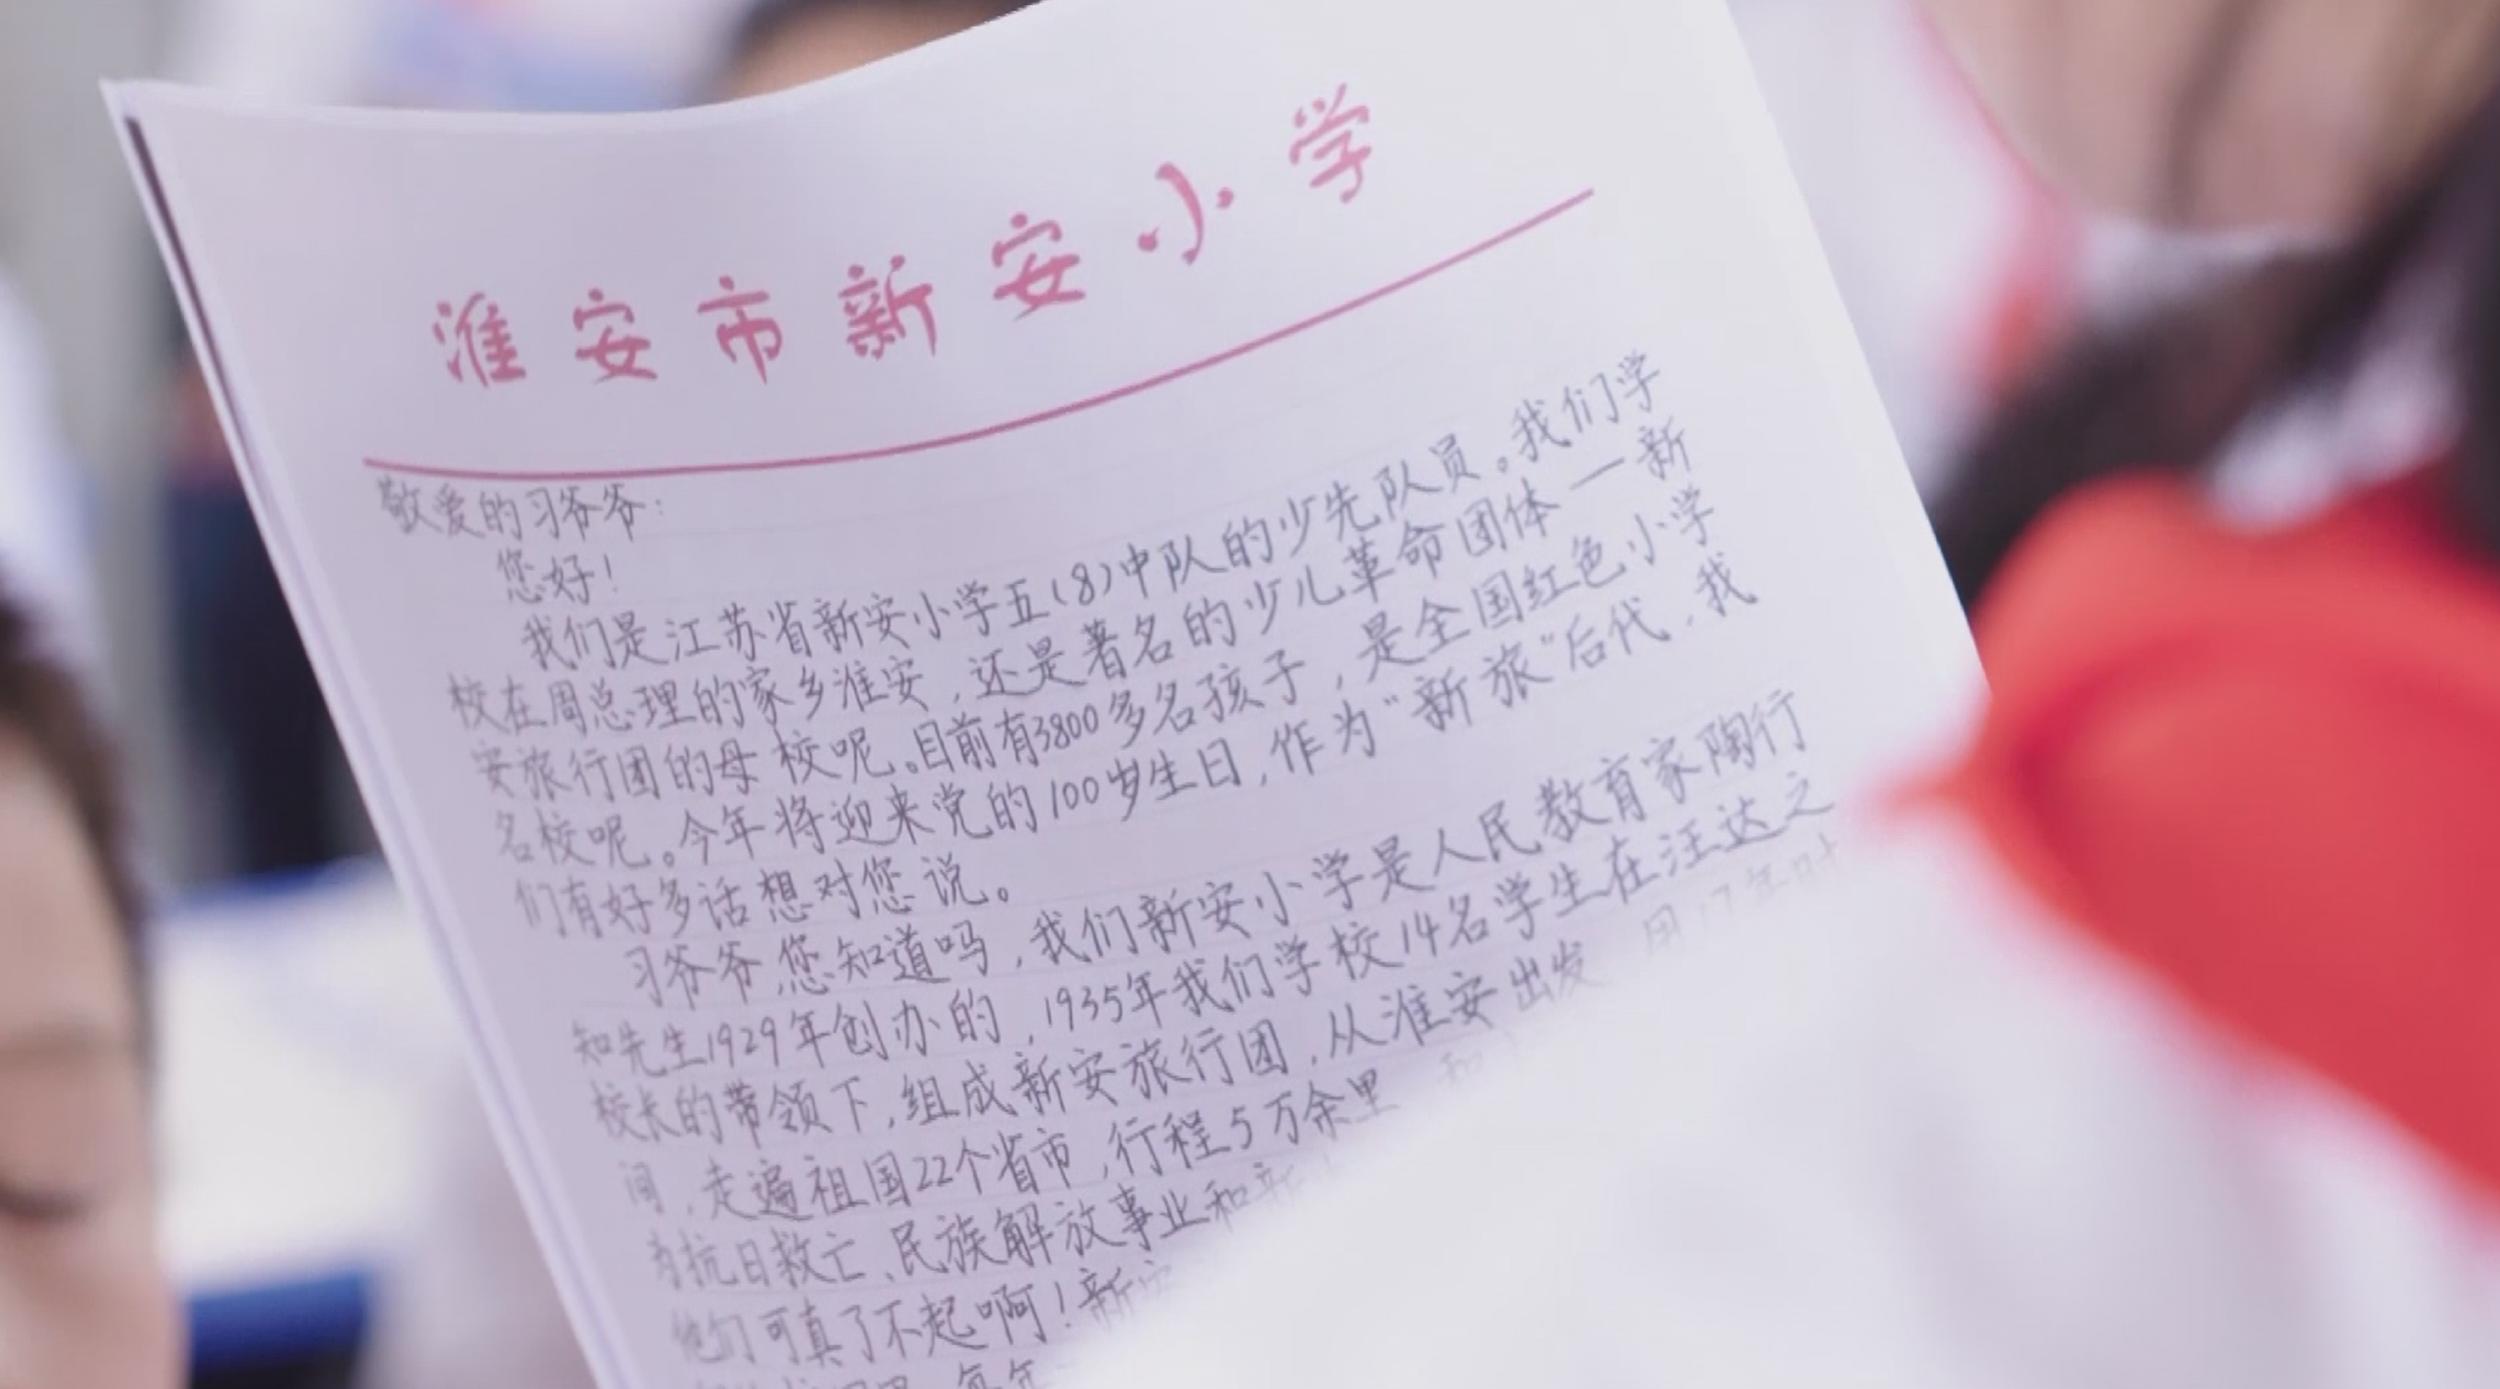 淮安市新安小学
敬爱的习爷爷：
您好！
我们是江苏省新安小学五(8)中队的少先队员。我们学
校在周总理的家乡淮安，还是著名的少儿革命团体一新
安旅行团的母校呢。目前有3800多名孩子，是全国红色小学
名校呢。今年将迎来党的100岁生日，作为"新旅"后代，我
们有好多话想对您说。
习爷爷，您知道吗，我们新安小学是人民教育家陶行
知先生1929年创办的，1935年我们学校14名学生在汪达之
校长的带领下，组成新安旅行团，从淮安出发 用17年时
间，走遍祖国22个省市，行程5万余里
为抗日救亡、民族解放事业和新
他们可真了不起啊！新安